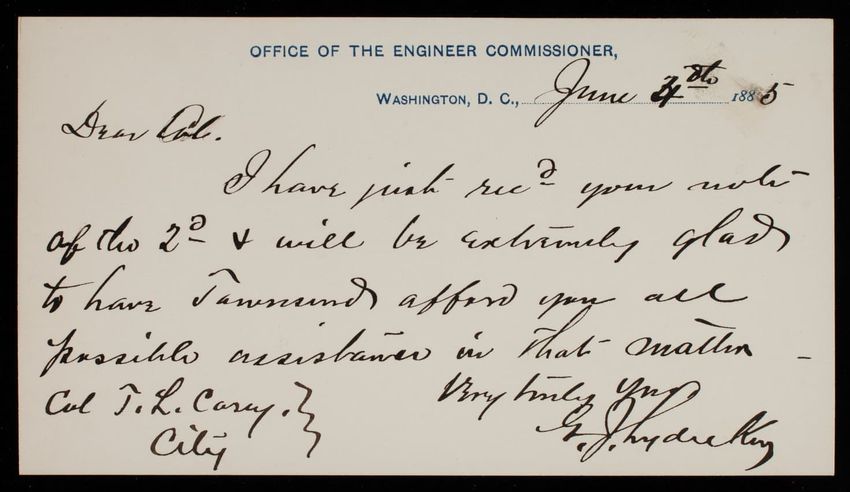 OFFICE OF THE ENGINEER COMMISSIONER,
WASHINGTON, D. C., June 4th 1885
Dear Col.
I have just recd your note
of the 2d & will be extremely glad
to have Townsend afford you all
possible assistance in that matter
Very truly yrs
Col T. L. Casey.
City
G. J. Lydecker